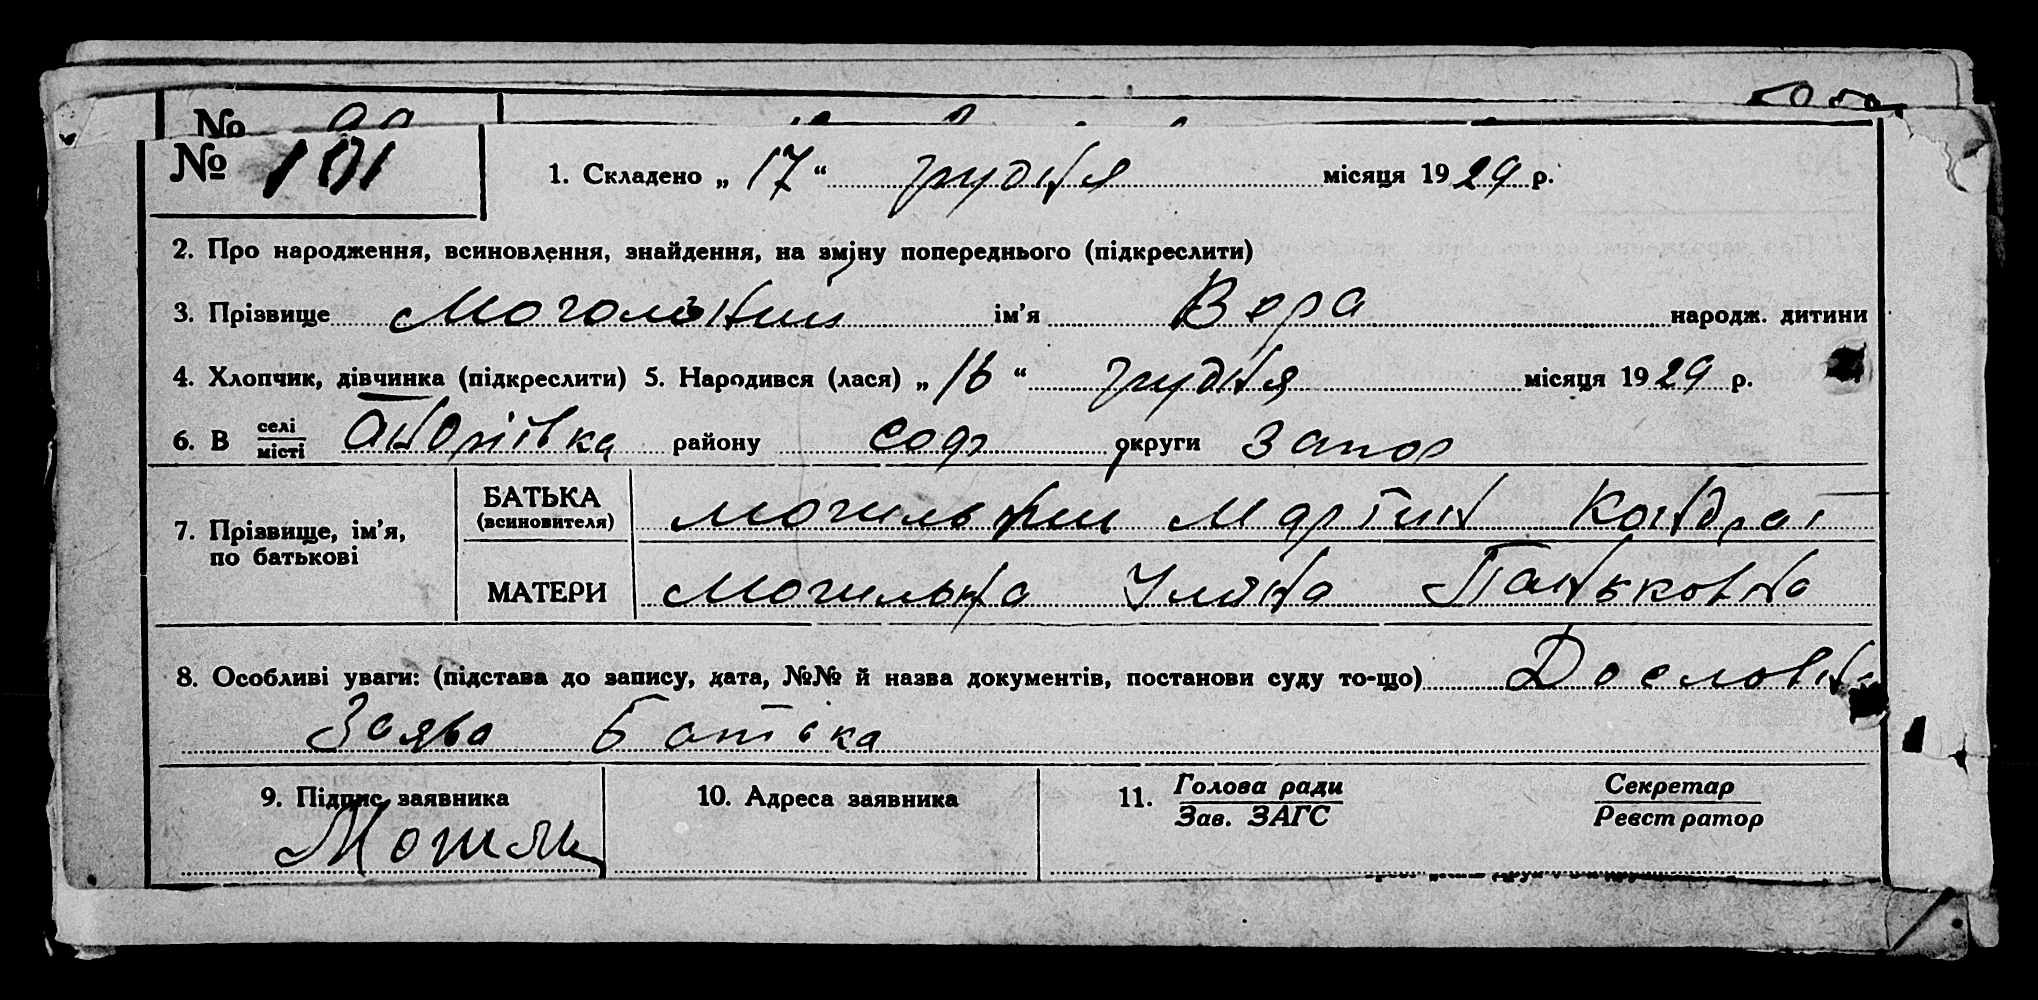 №
№ 101 1. Складено „ 17 “ грудня місяця 1929 р.
2. Про народження, всиновлення, знайдення, на зміну попереднього (підкреслити)
3. Прізвище Могольний ім'я Вера народж. дитини
4. Хлопчик, дівчинка (підкреслити) 5. Народився (лася) „ 16 “ грудня місяця 1929 р.
6. В селі/місті району Соф округи Запор
7. Прізвище, ім'я, по батькові
БАТЬКА (всиновителя) Могильний Мартин Кондрат
МАТЕРИ Могильна Уляна Паньковна
8. Особливі уваги: (підстава до запису, дата, №№ й назва документів, постанови суду то-що) Дословна
Заява Батька
9. Підпис заявника 10. Адреса заявника 11. Голова ради/Зав. ЗАГС Секретар/Реєстратор